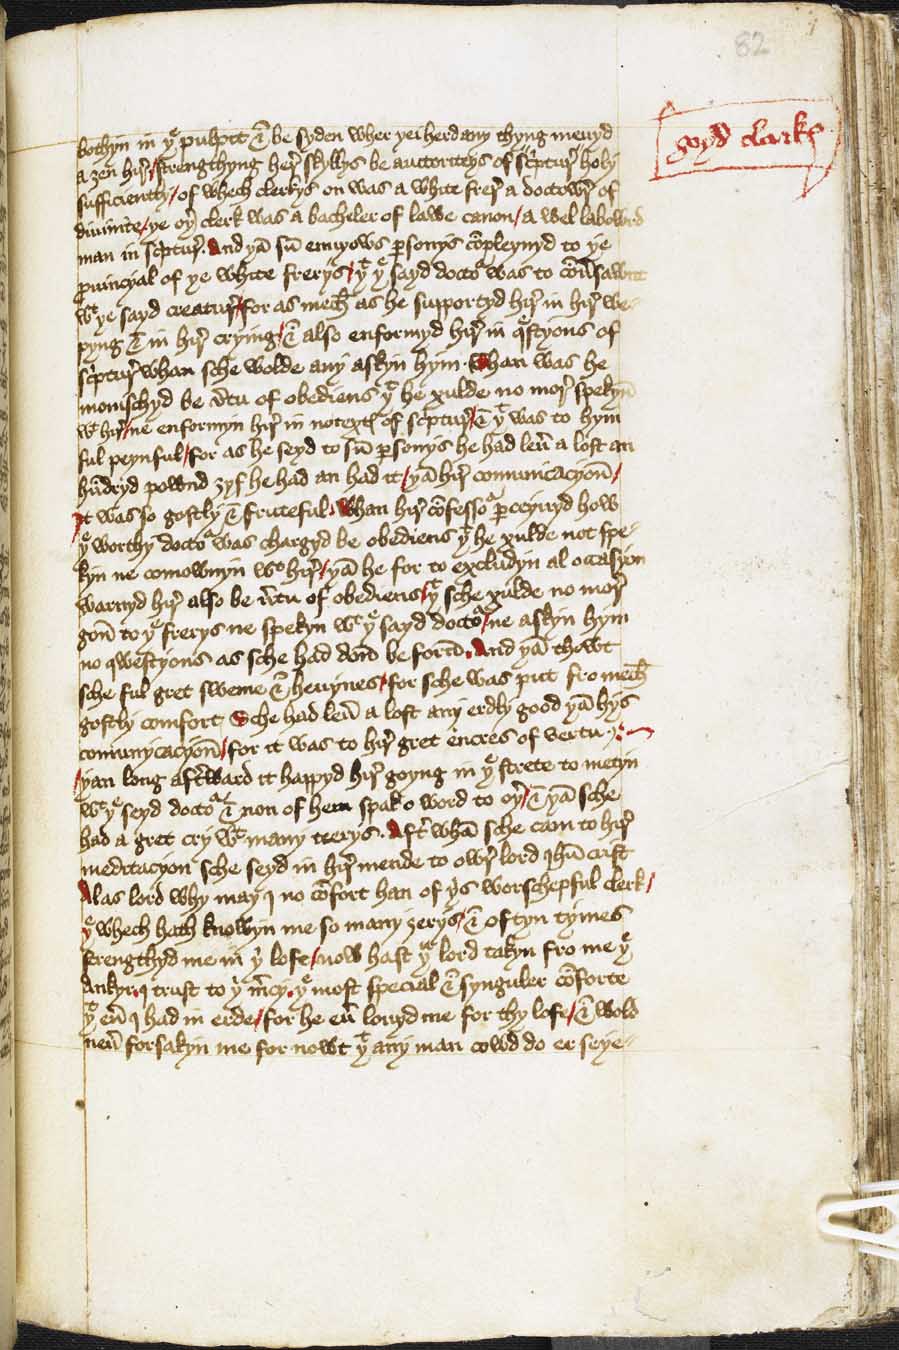 82
goyd clarkes
bothyn in yͤ pulpitt & be syden wher yei herd any thyng meuyd
a ȝen hir / strengthyng her skyllys be auctoriteys of scriptur holy
sufficiently / of whech clerkys on was a white frer a doctowr of
diuinite / ye oyr clerk was a bacheler of lawe canon / a wel labowrd
man in scriptur. And yan sum enuyows personys compleynyd to ye
prouincyal of ye white frerys / yͭ yͤ sayd doctor was to conuersawnt
wͭ ye sayd creatur / for as mech as he supportyd hir in hir we
pyng & in hir crying / & also enformyd hir in qwestyons of
scriptur whan sche wolde any askyn hym. Than was he
monischyd be vertu of obediens yͭ he xulde no mor spekyn
wͭ hir / ne enformyn hir in no textys of scriptur / & yͭ was to hym
ful peynful / for as he seyd to sum personys he had leuer a lost an
hundryd pownd ȝyf he had an had it / yan hir comunicacyon /
it was so gostly & fruteful. Whan hir confessor perceyuyd how
yͤ worthy doctor was chargyd be obediens yͭ he xulde not spe
kyn ne comownyn wͭ hir / yan he for to excludyn al occasyon
warnyd hir also be vertu of obediens / yͭ sche xulde no mor
gon to yͤ frerys ne spekyn wͭ yͤ sayd doctor / ne askyn hym
no qwestyons as sche had don be forn. And yan thowt
sche ful gret sweme & heuynes / for sche was put fro mech
gostly comfort Sche had leuer a lost any erdly good yan hys
comunycacyon / for it was to hir gret encres of vertu.
yan long aftirward it happyd hir goyng in yͤ strete to metyn
wͭ yͤ seyd doctor & non of hem spak o word to oyr / & yan sche
had a gret cry wͭ many teerys. Aftir whan sche cam to hir
meditacyon sche seyd in hir mende to owr lord ihu crist
Alas lord why may I no comfort han of yis worschepful clerk /
yͤ whech hath knowyn me so many ȝerys / & oftyn tymes
strengthyd me in yi lofe / now hast yu lord takyn fro me yͤ
ankyr. I trust to yi mercy. yͤ most special & synguler comforte
yͭ euyr I had in erde / for he euyr louyd me for thy lofe / & wold
neuyr forsakyn me for nowt yͭ any man cowd do er seye